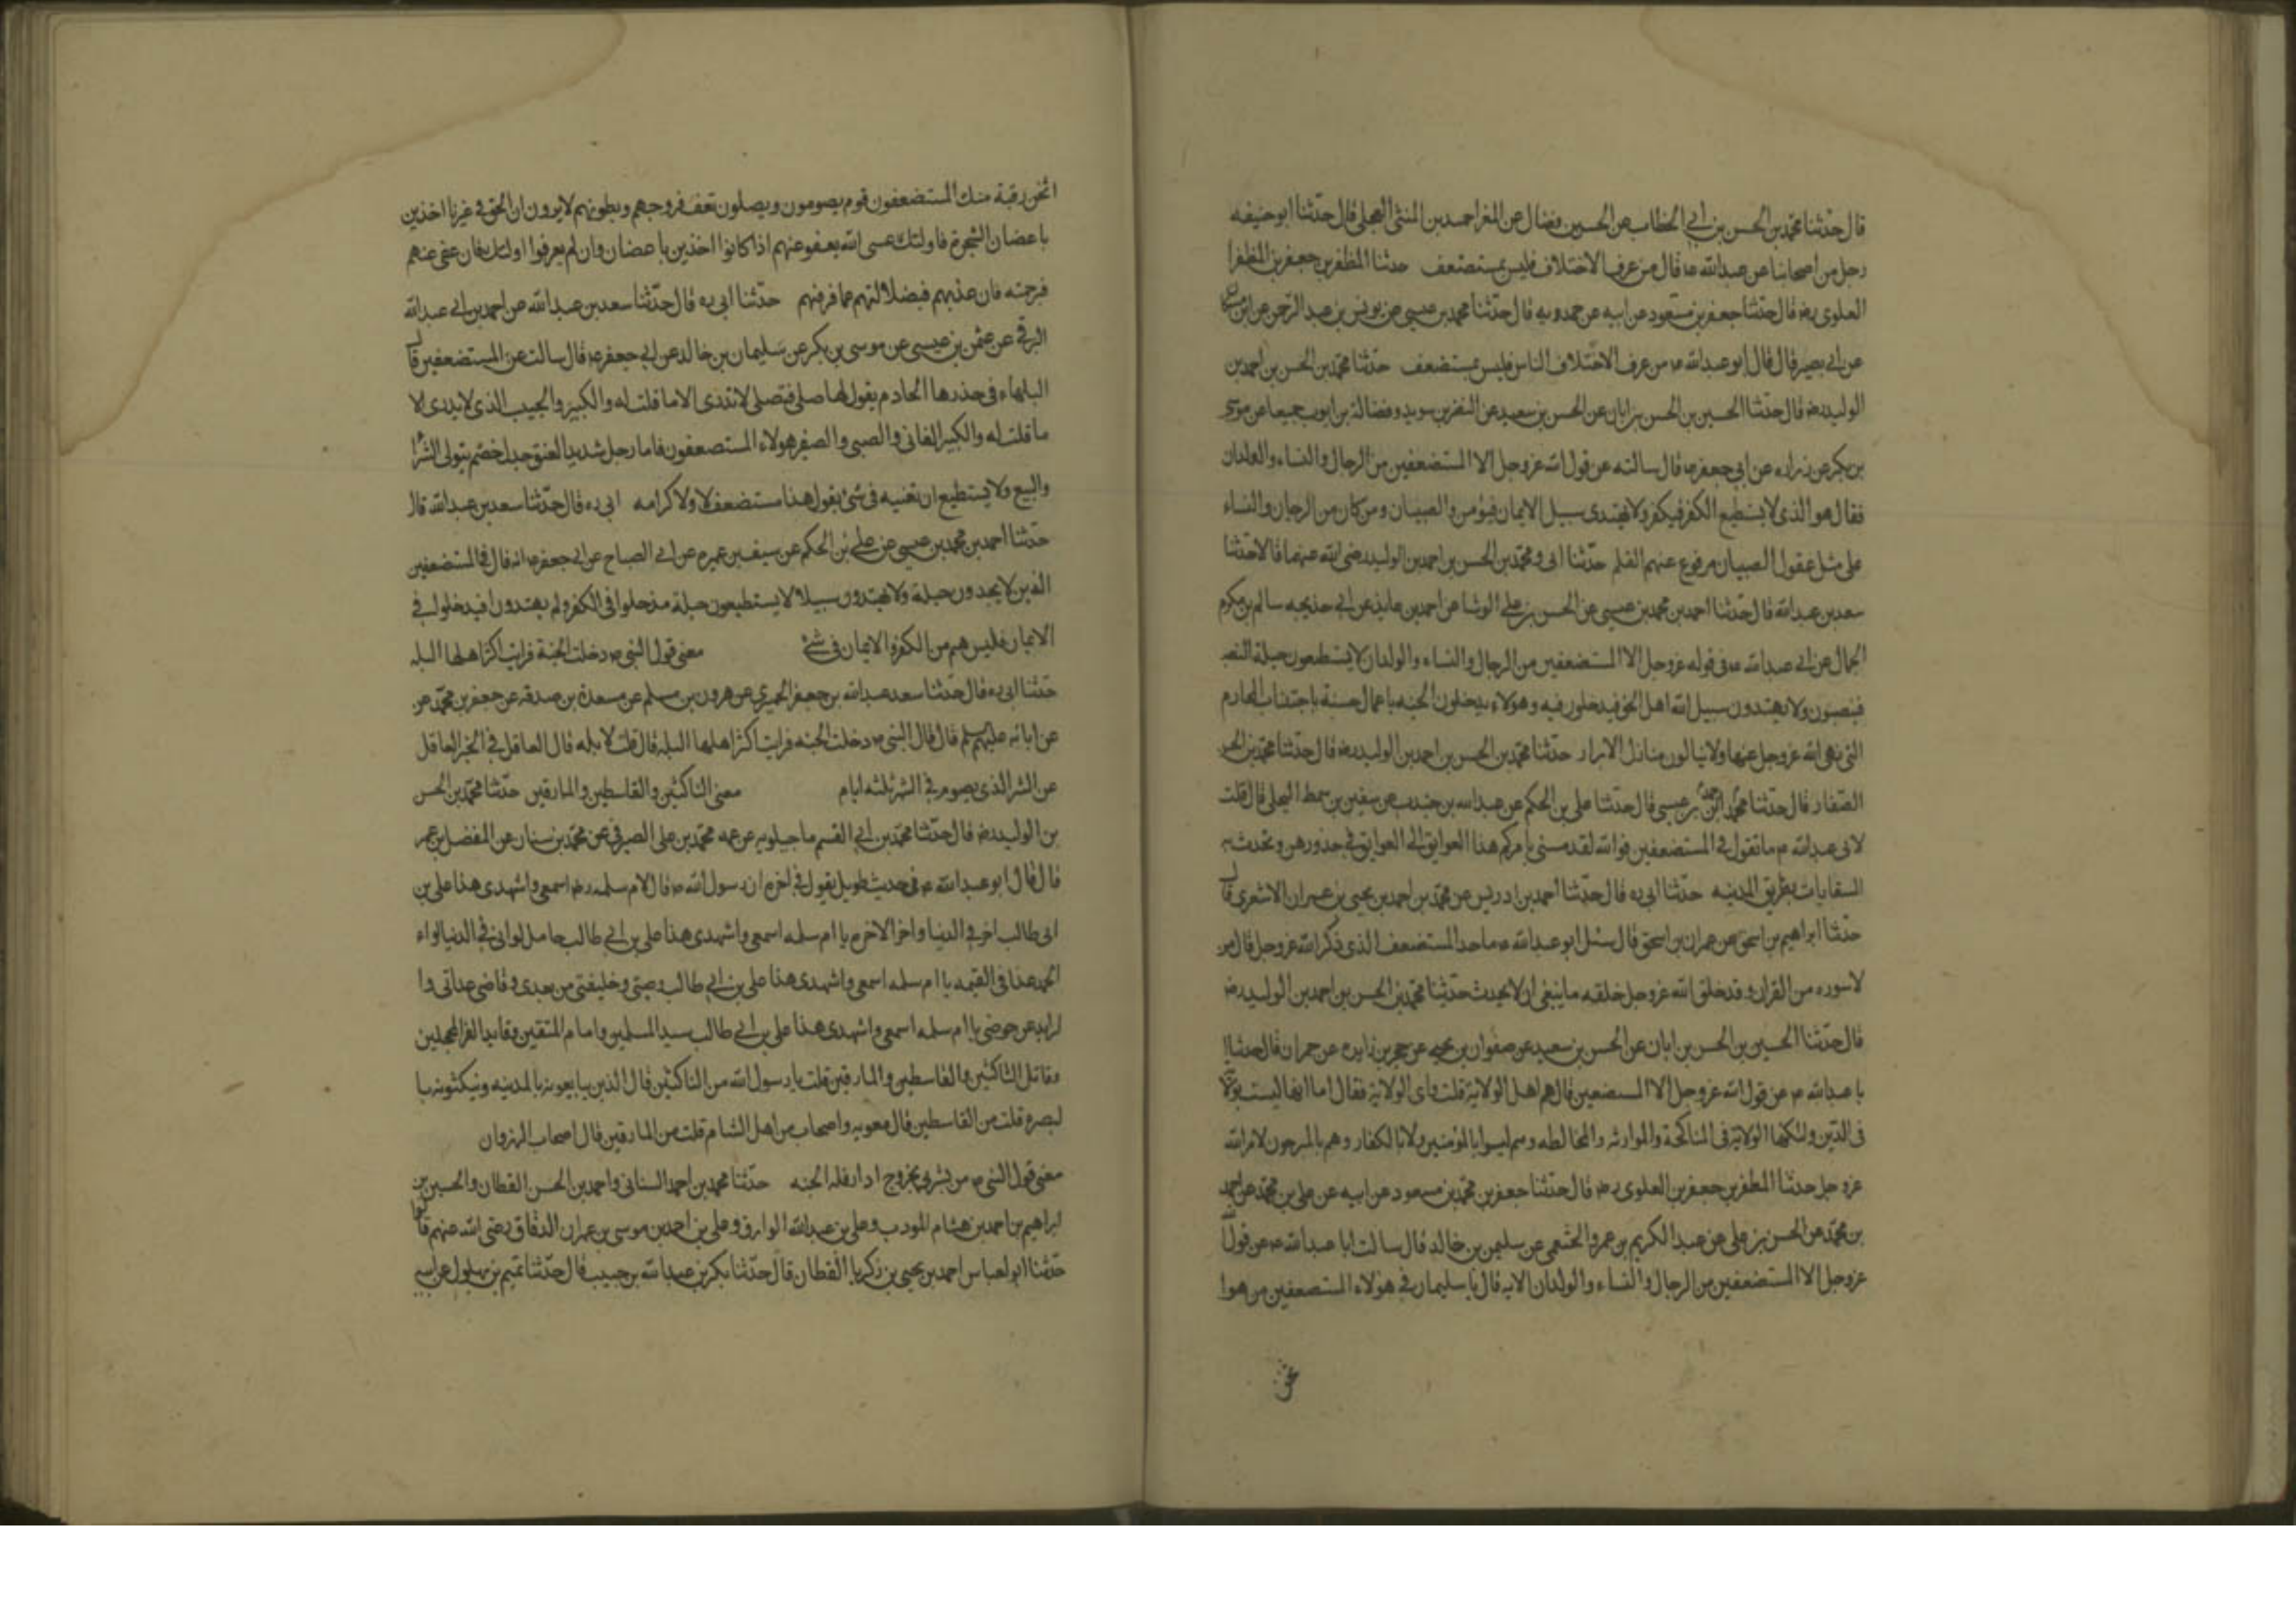 قال حدثنا محمد بن الحسن بن ابي الخطاب عن الحسين فضال عن المغرا احمد بن المثنى العجلي قال حدثنا ابو حنيفه
رجل من اصحابنا عن عبدالله ع قال من عرف الاختلاف فليس بمستضعف حدثنا المظفر بن جعفر بن المظفرا
العلوي رضه قال حدثنا جعفر بن مسعود عن ابيه عن حمدويه قال حدثنا محمد بن عيسى عن يونس بن عبد الرحمن عن ابن
عن ابي بصير قال قال ابو عبدالله ع من عرف الاختلاف الناس فليس بمستضعف حدثنا محمد بن الحسن بن احمد بن
الوليد رضه قال حدثنا الحسين بن الحسن بن ابان عن الحسن بن سعيد عن النضر بن سويد وفضالة بن ايوب جميعا عن موسى
بن بكر عن زراره عن ابي جعفر ع قال سالته عن قول الله عز وجل الا المستضعفين من الرجال والنساء والولدان
فقال هو الذي لا يستطيع الكفر فيكفر ولا يهتدى سبيل الايمان فيؤمن والصبيان ومن كان من الرجال والنساء
على مثل عقول الصبيان مرفوع عنهم القلم حدثنا ابى ومحمد بن الحسن بن احمد بن الوليد رضى الله عنهما قالا حدثنا
سعد بن عبدالله قال حدثنا احمد بن محمد بن عيسى عن الحسن بن على الوشا عن احمد بن عايذ عن ابي خديجه سالم بن مكرم
الجمال عن ابي عبدالله ع في قوله عز وجل الا المستضعفين من الرجال والنساء والولدان لا يستطيعون حيلة النصب
فينصبون ولا يهتدون سبيل الله اهل الحق فيدخلون فيه وهولاء يدخلون الجنه باعمال حسنة باجتناب المحارم
التى نهى الله عز وجل عنها ولا ينالون منازل الابرار حدثنا محمد بن الحسن بن احمد بن الوليد رضه قال حدثنا محمد بن الحسن
الصفار قال حدثنا محمد بن عيسى قال حدثنا على بن الحكم عن عبدالله بن جندب عن سفين بن سمط البجلى قال قلت
لابى عبدالله ع ما تقول في المستضعفين فوالله لقد مشى بامركم هذا العواتق الى العواتق في خدورهن وتحدث به
السقايات بطريق المدينه حدثنا ابى ره قال حدثنا احمد بن ادريس عن محمد بن احمد بن يحيى بن عمران الاشعرى قال
حدثنا ابراهيم بن اسحق عن عمران بن اسحق قال سئل ابو عبدالله ع ما حد المستضعف الذى ذكر الله عز وجل قال من
لا سوره من القران وقد خلق الله عز وجل خلقه ما ينبغى ان لا يحدث حدثنا محمد بن الحسن بن احمد بن الوليد رضه
قال حدثنا الحسين بن الحسن بن ابان عن الحسن بن سعيد عن صفوان بن يحيى عن حجر بن زايده عن حمران قال حدثنا ا
با عبدالله ع عن قول الله عز وجل الا المستضعفين قال هم اهل الولاية قلت واى الولاية فقال اما انها ليست بولا
في الدين ولكنها الولاية في المناكحة والموارثه والمخالطه وهم ليسوا بالمؤمنين ولا بالكفار وهم بالمرجون لامر الله
عز وجل حدثنا المظفر بن جعفر بن العلوى رضه قال حدثنا جعفر بن محمد بن مسعود عن ابيه عن على بن محمد عن احمد
بن محمد عن الحسن بن على عن عبد الكريم بن عمرو الخثعمى عن سليمن بن خالد قال سالت ابا عبدالله ع عن قول
عز وجل الا المستضعفين من الرجال والنساء والولدان الايه قال يا سليمان في هولاء المستضعفين من هو ا
اثخن
اثخن رقبة منك المستضعفون قوم يصومون ويصلون تعف فروجهم وبطونهم لا يرون ان الحق في غيرنا اخذين
باغصان الشجرة فاولئك عسى الله يعفو عنهم اذا كانوا اخذين باغصان وان لم يعرفوا اولئك فان عفى عنهم
فرحمته فان عذبهم فبضلالتهم عما عرفهم حدثنا ابى ره قال حدثنا سعد بن عبدالله عن احمد بن ابى عبدالله
البرقي عن عثمن بن عيسى عن موسى بن بكر عن سليمان بن خالد عن ابى جعفر ع قال سالت عن المستضعفين قال
البلهاء في خدرها الخادم يقول لها صلى فتصلى لا تدرى الا ما قلت له والكبير والجليب الذى لا يدرى الا
ما قلت له والكبير الفاني والصبى والصغير هولاء المستضعفون فاما رجل شديد العنق جدل خصم يتولى الشرا
والبيع ولا يستطيع ان تغنيه فى شئ يقول هذا مستضعف لا ولا كرامه ابى ره قال حدثنا سعد بن عبدالله قال
حدثنا احمد بن محمد بن عيسى عن على بن الحكم عن سيف بن عميره عن ابى الصباح عن ابى جعفر ع انه قال في المستضعفين
الذين لا يجدون حيلة ولا يهتدون سبيلا لا يستطيعون حيلة فيدخلوا فى الكفر ولم يهتدون افيدخلوا في
الايمان فليس هم من الكفر والايمان في شئ معنى قول النبى ص دخلت الجنة فرايت اكثر اهلها البله
حدثنا ابى ره قال حدثنا سعد عبدالله بن جعفر الحميرى عن هرون بن مسلم عن مسعدة بن صدقه عن جعفر بن محمد عن
عن ابائه عليهم السلم قال قال النبى ص دخلت الجنه فرايت اكثر اهلها البله قال قلت لا بله قال العاقل في الخير الغافل
عن الشر الذى يصوم في الشهر ثلثه ايام معنى الناكثين والقاسطين والمارقين حدثنا محمد بن الحسن
بن الوليد رضه قال حدثنا محمد بن ابى القسم ماجيلويه عن عمه محمد بن على الصيرفى عن محمد بن سنان عن المفضل بن عمر
قال قال ابو عبدالله ع في حديث طويل يقول في اخره ان رسول الله ص قال لام سلمه رضه اسمعى واشهدى هذا على بن
ابى طالب اخى في الدنيا واخى الاخره يا ام سلمه اسمعى واشهدى هذا على بن ابى طالب حامل لوائى في الدنيا لواء
الحمد غدا في القيمه يا ام سلمه اسمعى واشهدى هذا على بن ابى طالب وصيى وخليفتى من بعدى وقاضى عداتى وا
لرايد عن حوضى يا ام سلمه اسمعى واشهدى هذا على بن ابى طالب سيد المسلمين وامام المتقين وقايد الغر المحجلين
وقاتل الناكثين والقاسطين والمارقين قلت يا رسول الله من الناكثين قال الذين يبايعونه بالمدينه وينكثونه با
لبصره قلت من القاسطين قال معويه واصحابه من اهل الشام قلت من المارقين قال اصحاب النهروان
معنى قول النبى ص من بشرنى بخروج اذار فله الجنه حدثنا محمد بن احمد السنانى واحمد بن الحسن القطان والحسين بن
ابراهيم بن احمد بن هشام المودب وعلى بن عبدالله الوراق وعلى بن احمد بن موسى بن عمران الدقاق رضى الله عنهم قالوا
حدثنا ابو العباس احمد بن يحيى بن زكريا القطان قال حدثنا بكر بن عبدالله بن حبيب قال حدثنا تميم بن بهلول عن ابيه